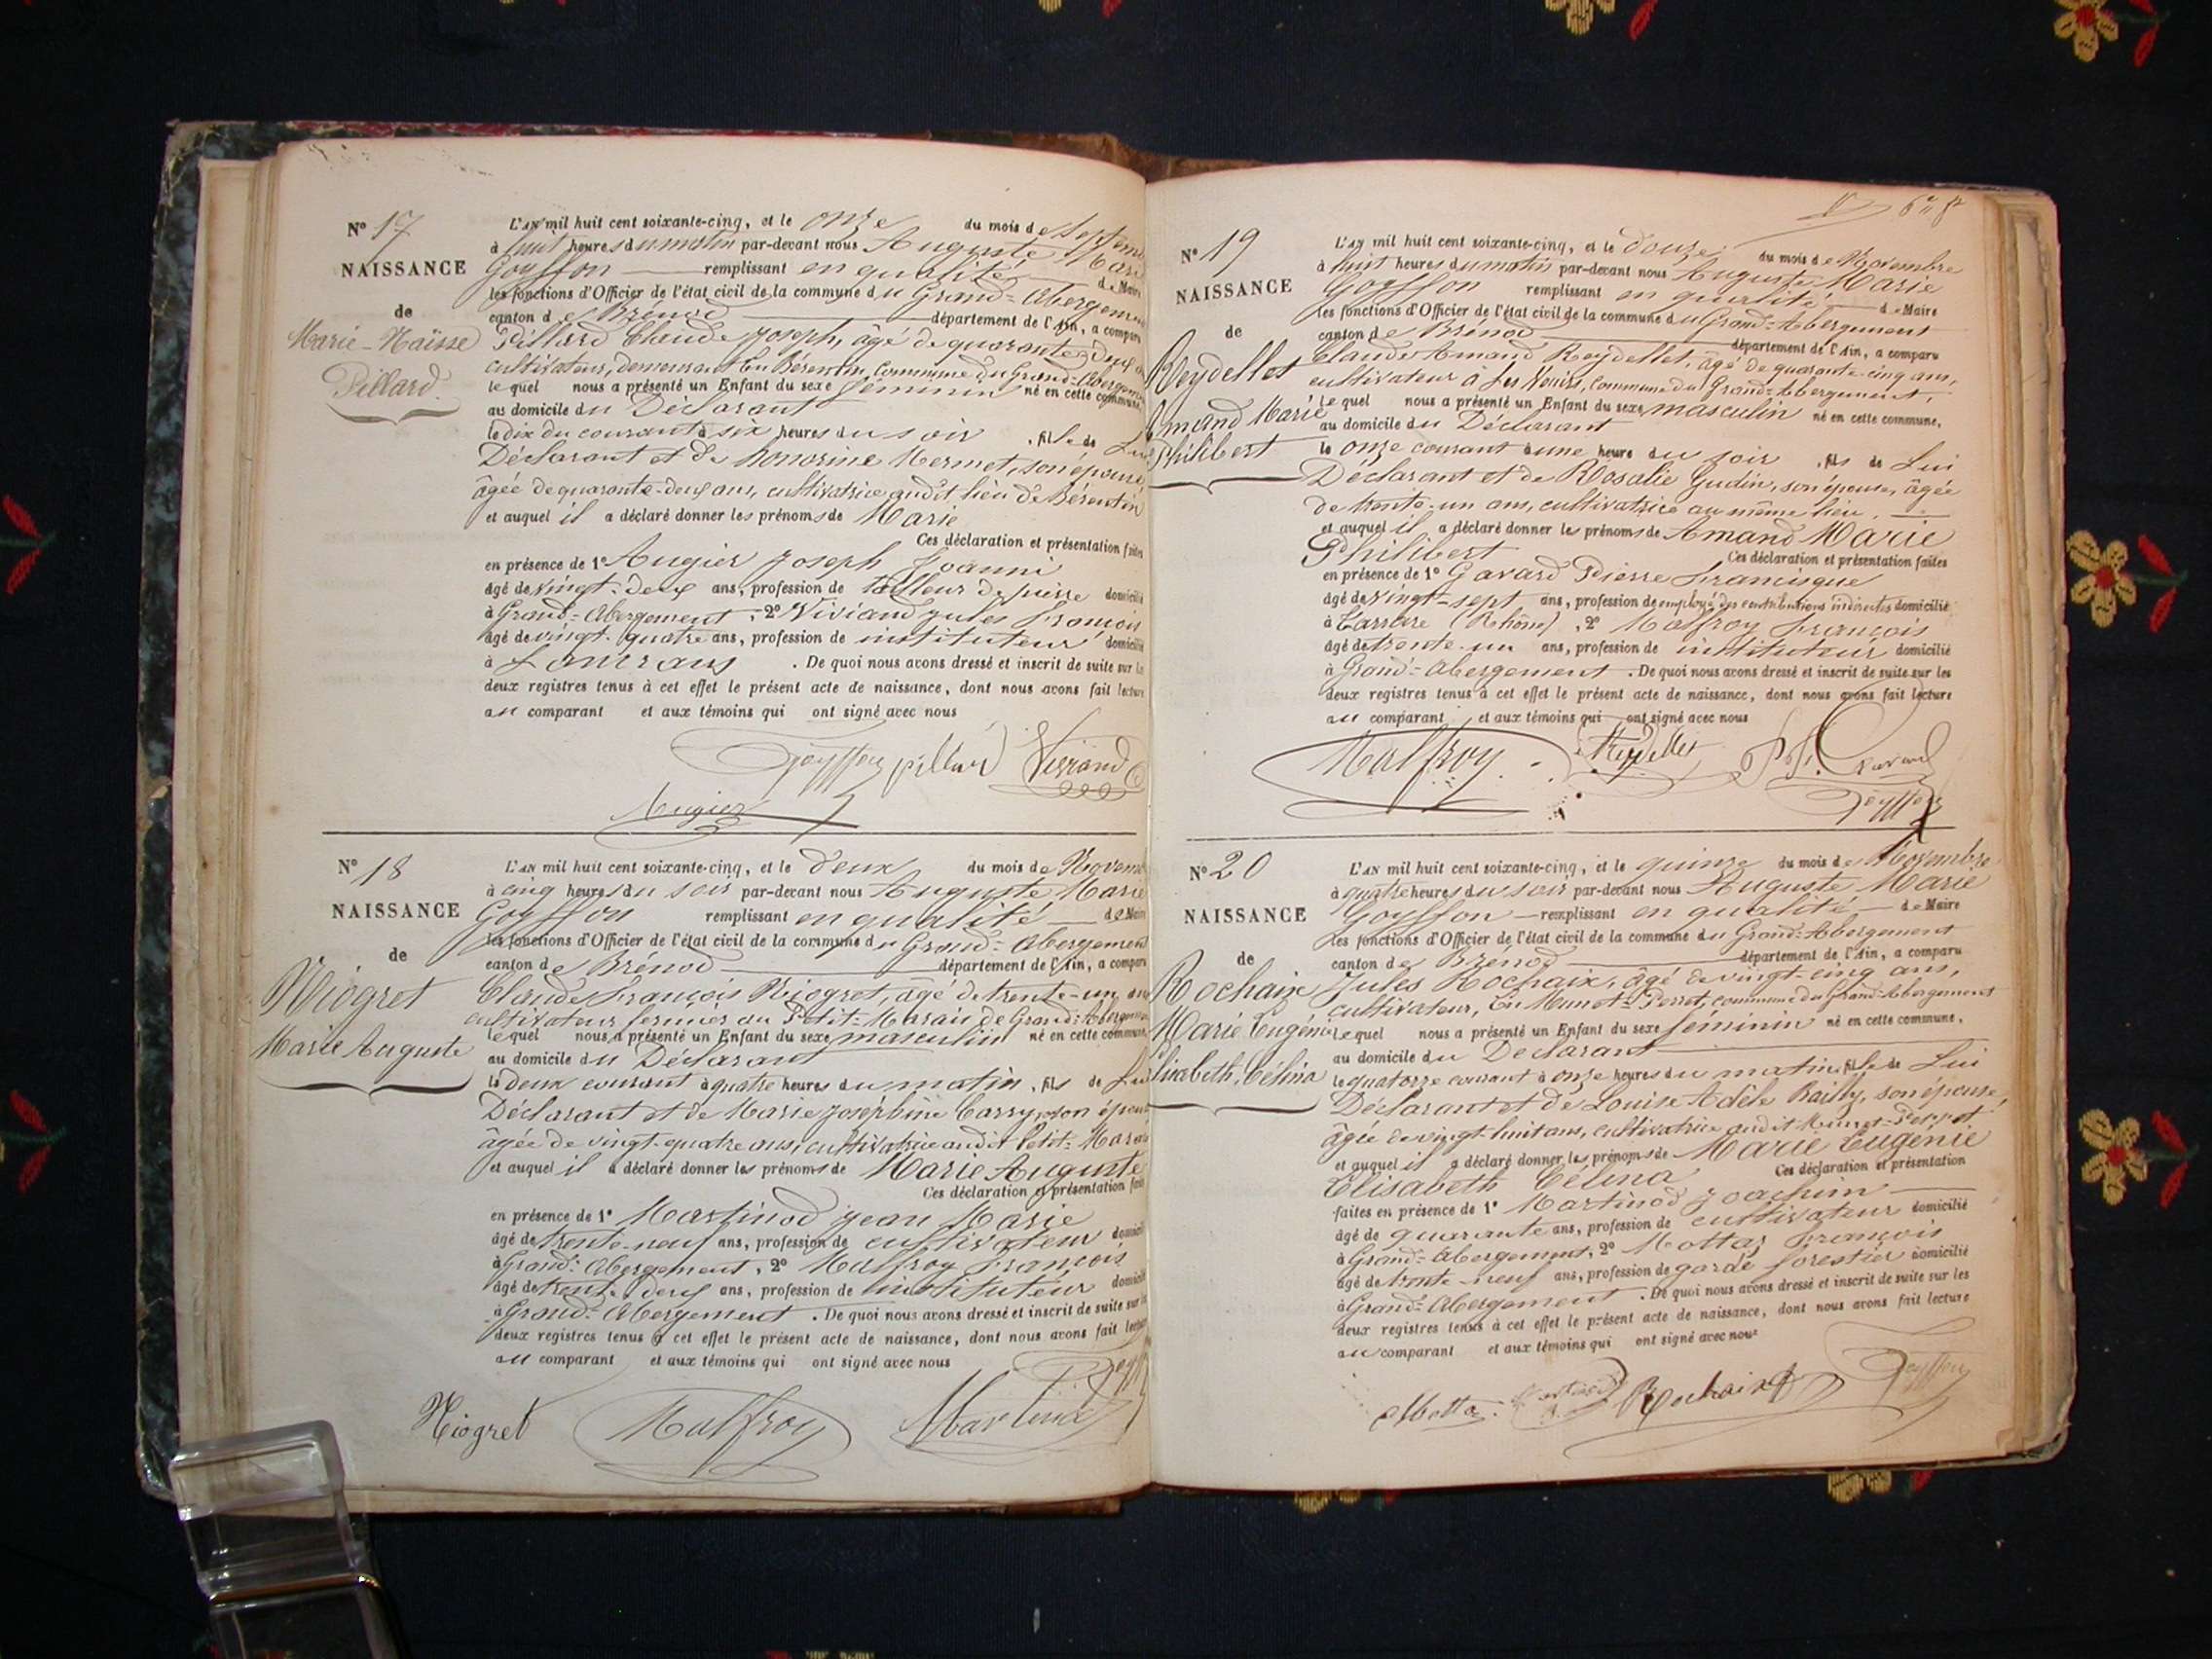 Nº 17
NAISSANCE
de
Marie-Naïsse
Pillard.
L'AN mil huit cent soixante-cinq, et le onze du mois de Septem
à huit heures du matin par-devant nous Auguste Mari
Goyffon remplissant en qualité de Maire
les fonctions d'Officier de l'état civil de la commune du Grand-Abergemen
canton de Brénod département de l'Ain, a comparu
Pillard Claude Joseph, âgé de quarante-deux
cultivateur, demeurant En Bérentin, Commune du Grand-Abergem
le quel nous a présenté un Enfant du sexe féminin né en cette commune,
au domicile du Déclarant
le dix du courant à six heures du soir, fille de Lui
Déclarant et de Honorine Mermet, son épouse
âgée de quarante-deux ans, cultivatrice audit lieu de Bérentin
et auquel il a déclaré donner les prénoms de Marie
Ces déclaration et présentation faites
en présence de 1º Augier Joseph Joanni
âgé de vingt-deux ans, profession de tailleur de pierre domicilié
à Grand-Abergement, 2º Viviand Jules François
âgé de vingt-quatre ans, profession de instituteur domicilié
à . De quoi nous avons dressé et inscrit de suite sur les
deux registres tenus à cet effet le présent acte de naissance, dont nous avons fait lecture
au comparant et aux témoins qui ont signé avec nous
Goyffon pillard Viviand
Augier
Nº 18
NAISSANCE
de
Niogret
Marie Auguste
L'AN mil huit cent soixante-cinq, et le deux du mois de Novem
à cinq heures du soir par-devant nous Auguste Marie
Goyffon remplissant en qualité de Maire
les fonctions d'Officier de l'état civil de la commune du Grand-Abergement
canton de Brénod département de l'Ain, a comparu
Claude François Niogret, âgé de trente-un an
cultivateur fermier au Petit-Marais de Grand-Abergemen
le quel nous a présenté un Enfant du sexe masculin né en cette commune,
au domicile du Déclarant
le deux courant à quatre heures du matin, fils de Lui
Déclarant et de Marie Joséphine Carry, son épouse
âgée de vingt-quatre ans, cultivatrice audit Petit-Marais
et auquel il a déclaré donner les prénoms de Marie Auguste
Ces déclaration et présentation faites
en présence de 1º Martinod Jean Marie
âgé de trente-neuf ans, profession de cultivateur domicilié
à Grand-Abergement, 2º Malfroy François
âgé de trente-deux ans, profession de instituteur domicilié
à Grand-Abergement. De quoi nous avons dressé et inscrit de suite sur les
deux registres tenus à cet effet le présent acte de naissance, dont nous avons fait lecture
au comparant et aux témoins qui ont signé avec nous
Goyff
Niogret Malfroy Martinod
Nº 19
NAISSANCE
de
Reydellet
Amand Marie
Philibert
L'AN mil huit cent soixante-cinq, et le douze du mois de Novembre
à huit heures du matin par-devant nous Auguste Marie
Goyffon remplissant en qualité de Maire
les fonctions d'Officier de l'état civil de la commune du Grand-Abergement
canton de Brénod département de l'Ain, a comparu
Claude Amand Reydellet, âgé de quarante-cinq ans,
cultivateur à Les Commune du Grand-Abergement,
le quel nous a présenté un Enfant du sexe masculin né en cette commune,
au domicile du Déclarant
le onze courant à une heure du soir, fils de Lui
Déclarant et de Rosalie Gudin, son épouse, âgée
de trente-un ans, cultivatrice au même lieu.
et auquel il a déclaré donner les prénoms de Amand Marie
Philibert Ces déclaration et présentation faites
en présence de 1º Gavard Pierre Francisque
âgé de vingt-sept ans, profession de employé des contributions indirectes domicilié
à Tarrare (Rhône), 2º Malfroy François
âgé de trente-un ans, profession de instituteur domicilié
à Grand-Abergement. De quoi nous avons dressé et inscrit de suite sur les
deux registres tenus à cet effet le présent acte de naissance, dont nous avons fait lecture
au comparant et aux témoins qui ont signé avec nous
Malfroy Reydellet Gavard
Goyffon
Nº 20
NAISSANCE
de
Rochaix
Marie Eugénie
Elisabeth Célina
L'AN mil huit cent soixante-cinq, et le quinze du mois de Novembre
à quatre heures du soir par-devant nous Auguste Marie
Goyffon remplissant en qualité de Maire
les fonctions d'Officier de l'état civil de la commune du Grand-Abergement
canton de Brénod département de l'Ain, a comparu
Jules Rochaix, âgé de vingt-cinq ans,
cultivateur, En Munet-Perret, commune du Grand-Abergement
le quel nous a présenté un Enfant du sexe féminin né en cette commune,
au domicile du Déclarant
le quatorze courant à onze heures du matin, fille de Lui
Déclarant et de Louise Adèle Bailly, son épouse,
âgée de vingt-huit ans, cultivatrice audit Munet-Perret
et auquel il a déclaré donner les prénoms de Marie Eugénie
Elisabeth Célina Ces déclaration et présentation
faites en présence de 1º Martinod Joachim
âgé de quarante ans, profession de cultivateur domicilié
à Grand-Abergement, 2º Mottaz François
âgé de trente-neuf ans, profession de garde forestier domicilié
à Grand-Abergement. De quoi nous avons dressé et inscrit de suite sur les
deux registres tenus à cet effet le présent acte de naissance, dont nous avons fait lecture
au comparant et aux témoins qui ont signé avec nous
Mottaz Martinod Rochaix Goyffon